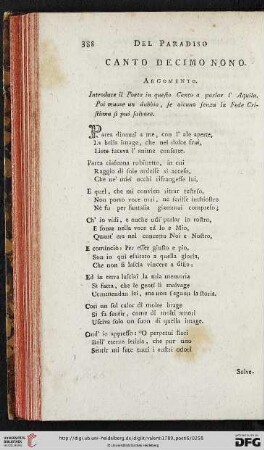 388 DEL PARADISO
CANTO DECIMO NONO.
ARGOMENTO.
Introduce il Poeta in questo Canto a parlar l' Aquila.
Poi muove un dubbio, se alcuno senza la Fede Cri-
stiana si può salvare.
Parea dinanzi a me, con l' ale aperte,
La bella image, che nel dolce frui,
Liete faceva l' anime conserte.
Parea ciascuna rubinetto, in cui
Raggio di sole ardesse sì acceso,
Che ne' miei occhi rifrangesse lui.
E quel, che mi convien ritrar testeso,
Non portò voce mai, nè scrisse inchiostro
Nè fu per fantasia giammai compreso;
Ch' io vidi, e anche udi' parlar lo rostro,
E sonar nella voce ed Io e Mio,
Quand' era nel concetto Noi e Nostro.
E cominciò: Per esser giusto e pio,
Son io qui esaltato a quella gloria,
Che non si lascia vincere a disio:
Ed in terra lasciai la mia memoria
Sì fatta, che le genti lì malvage
Commendan lei, ma non seguon la storia.
Così un sol calor di molte brage
Si fa sentir, come di molti amori
Usciva solo un suon di quella image.
Ond' io appresso: O perpetui fiori
Dell' eterna letizia, che pur uno
Sentir mi fate tutti i vostri odori
Solve.
http://digi.ub.uni-heidelberg.de/diglit/
© Universitätsbibliothek Heidelberg
DFG